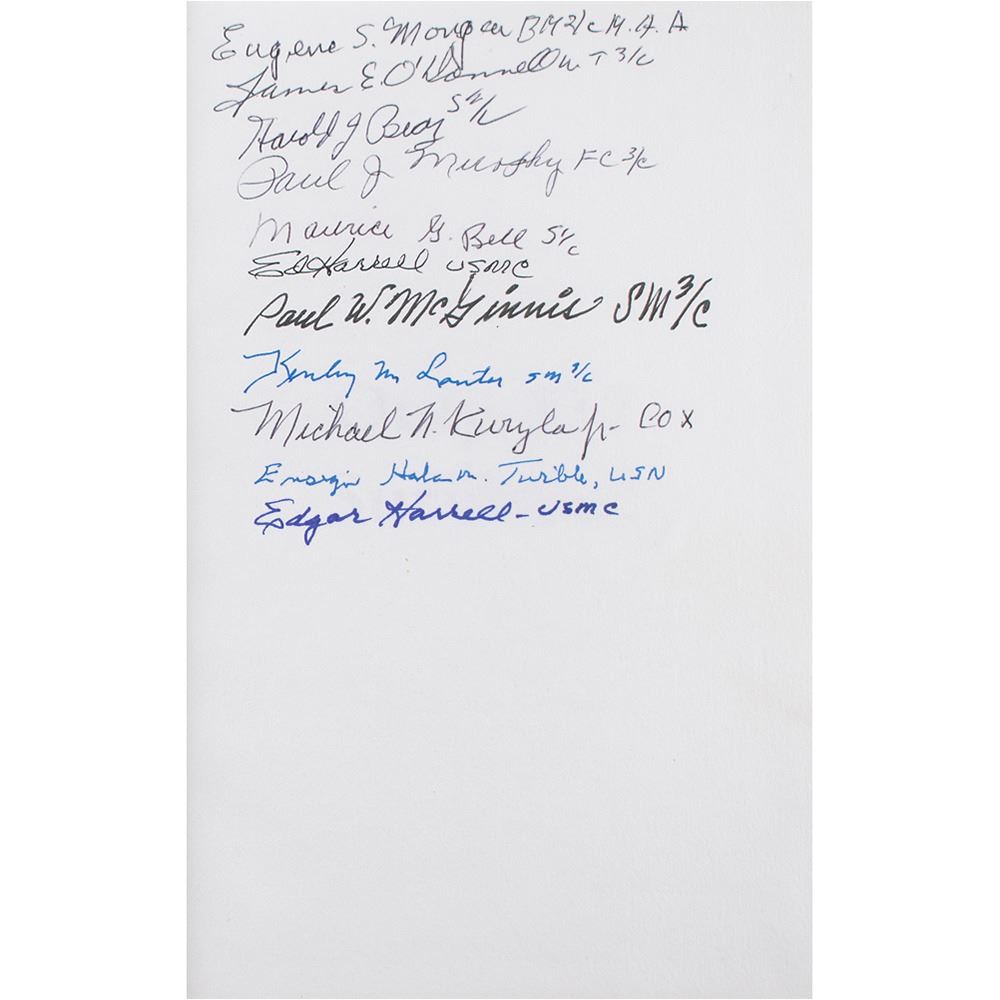 Eugene S. Morgan BM2/c M.A.A
James E. O'Donnell W T 3/c
Harold J Bray S2/c
Paul J Murphy FC 3/c
Maurice G. Bell S1/c
Ed Harrell USMC
Paul W. McGinnis SM3/c
Kenley M Lanter SM 3/c
Michael N. Kuryla Jr- COX
Ensign Twible, USN
Edgar Harrell - USMC